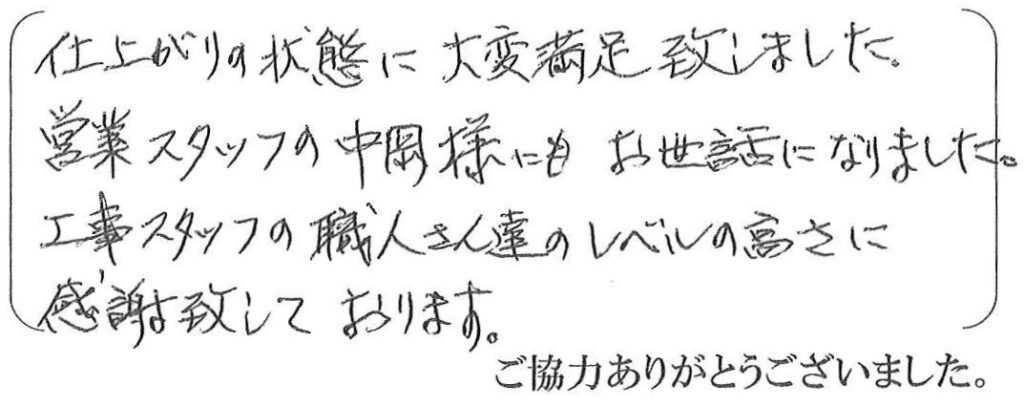 仕上がりの状態に大変満足致しました。
営業スタッフの中岡様にもお世話になりました。
工事スタッフの職人さん達のレベルの高さに
感謝致しております。
ご協力ありがとうございました。